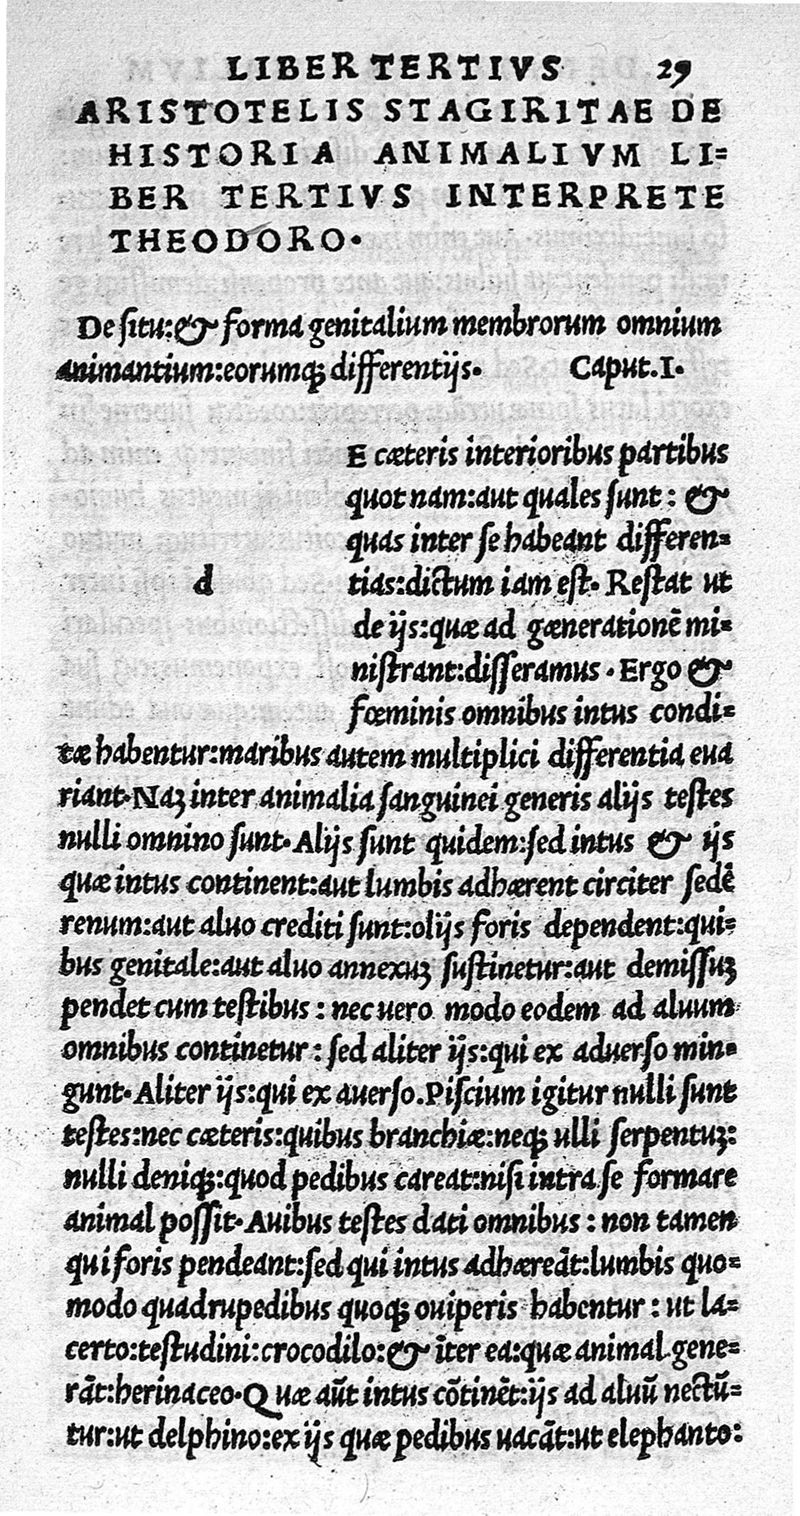 LIBER TERTIVS 29
ARISTOTELIS STAGIRITAE DE
HISTORIA ANIMALIVM LI=
BER TERTIVS INTERPRETE
THEODORO.
De situ:& forma genitalium membrorum omnium
animantium:eorumq; differentijs. Caput.I.
E cæteris interioribus partibus
quot nam:aut quales sunt: &
quas inter se habeant differen=
d
tias:dictum iam est. Restat ut
de ijs:quæ ad gænerationē mi=
nistrant:disseramus. Ergo &
fœminis omnibus intus condi=
tæ habentur:maribus autem multiplici differentia eua
riant.Naȝ inter animalia sanguinei generis alijs testes
nulli omnino sunt.Alijs sunt quidem:sed intus & ijs
quæ intus continent:aut lumbis adhærent circiter sedē
renum:aut aluo crediti sunt:olijs foris dependent:qui=
bus genitale:aut aluo annexuȝ sustinetur:aut demissuȝ
pendet cum testibus: nec uero modo eodem ad aluum
omnibus continetur: sed aliter ijs:qui ex aduerso min=
gunt.Aliter ijs:qui ex auerso.Piscium igitur nulli sunt
testes:nec cæteris:quibus branchiæ:neq; ulli serpentuȝ:
nulli deniq;:quod pedibus careat:nisi intra se formare
animal possit.Auibus testes dati omnibus: non tamen
qui foris pendeant:sed qui intus adhæreāt:lumbis quo=
modo quadrupedibus quoq; ouiperis habentur: ut la=
certo:testudini:crocodilo:& īter ea:quæ animal gene=
rāt:herinaceo.Quæ aūt intus cōtinēt:ijs ad aluū nectū=
tur:ut delphino:ex ijs quæ pedibus uacāt:ut elephanto: